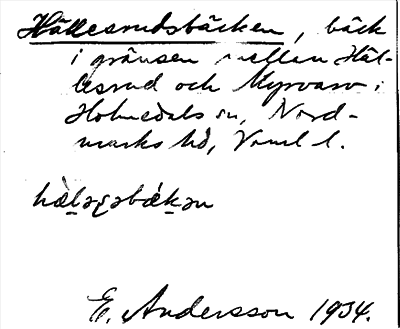 Hällesrudsbäcken, bäck
i gränsen mellan Häl-
lesrud och Myrvarv i
Holmedals sn, Nord-
marks hd, Värml l.
E. Andersson 1934.